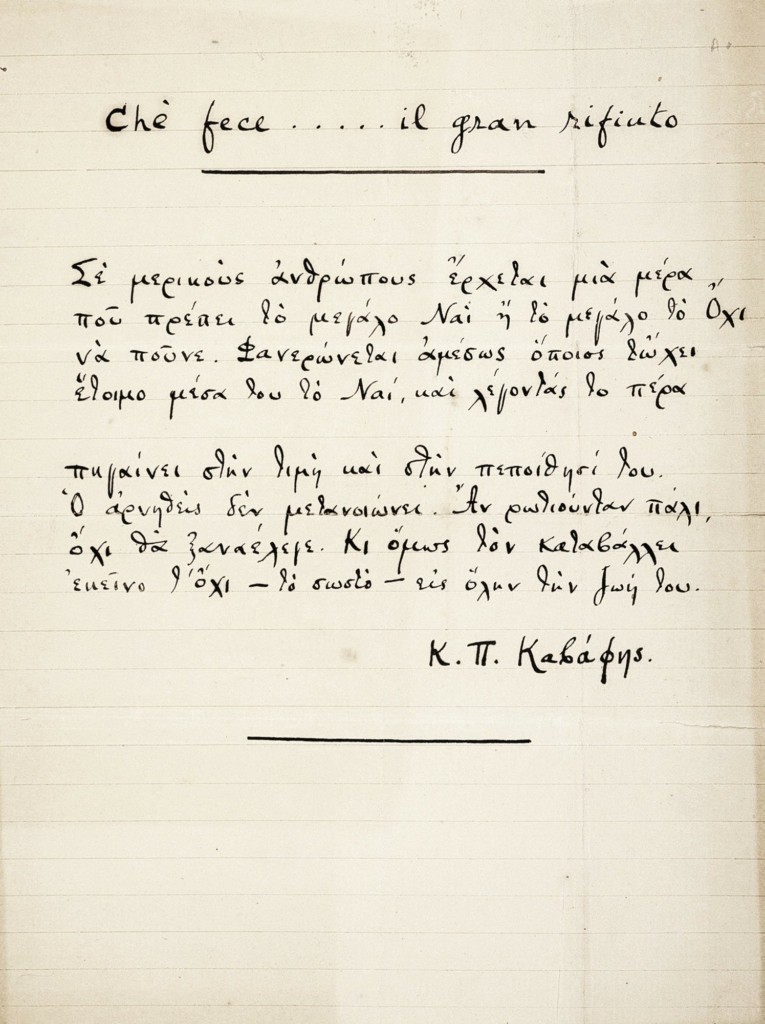 Chè fece ..... il gran rifiuto
Σὲ μερικοὺς ἀνθρώπους ἔρχεται μιὰ μέρα
ποῦ πρέπει τὸ μεγάλο Ναὶ ἢ τὸ μεγάλο τὸ Ὄχι
νὰ ποῦνε. Φανερώνεται ἀμέσως ὅποιος τὤχει
ἕτοιμο μέσα του τὸ Ναί, καὶ λέγοντάς το πέρα
πηγαίνει στὴν τιμὴ καὶ στὴν πεποίθησί του.
Ὁ ἀρνηθεὶς δὲν μετανοιώνει. Ἂν ρωτιούνταν πάλι,
ὄχι θὰ ξαναέλεγε. Κι ὅμως τὸν καταβάλλει
ἐκεῖνο τ' ὄχι — τὸ σωστὸ — εἰς ὅλην τὴν ζωή του.
Κ. Π. Καβάφης.